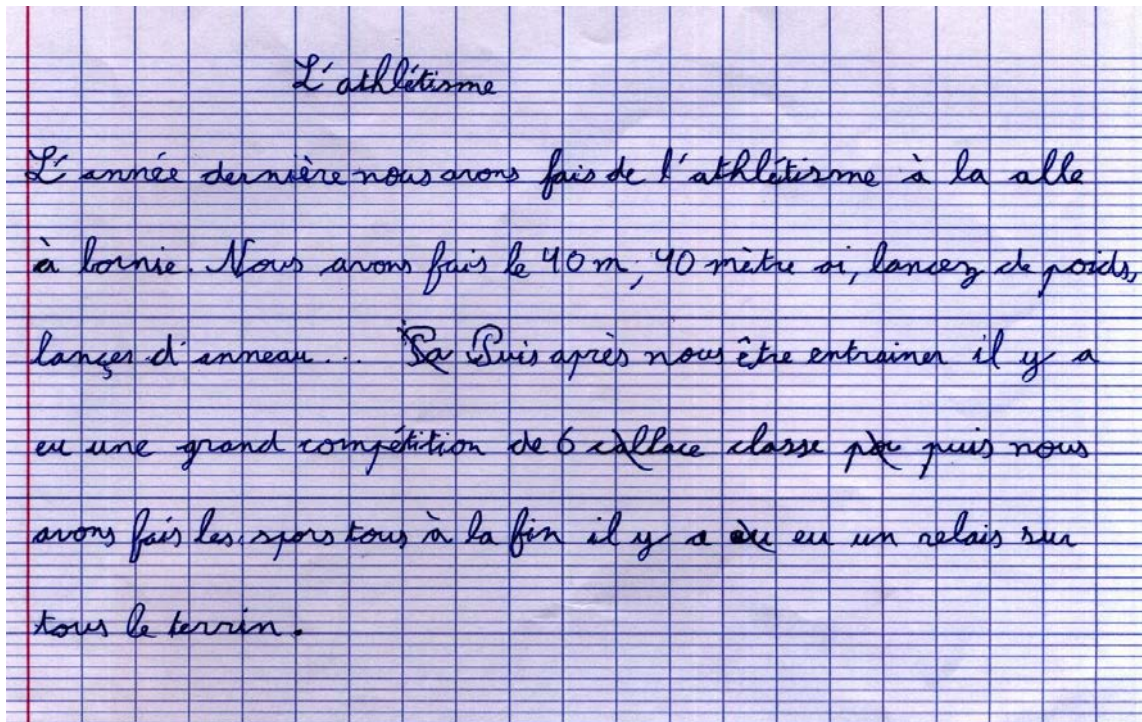 L'athlétisme
L'année dernière nous avons fais de l'athlétisme à la alle
à bornie. Nous avons fais le 40 m, 40 mètre oi, lancez de poids,
lançer d'anneau... Puis après nous être entrainer il y a
eu une grand compétition de 6 classe puis nous
avons fais les spors tous à la fin il y a eu un relais sur
tous le terrin.